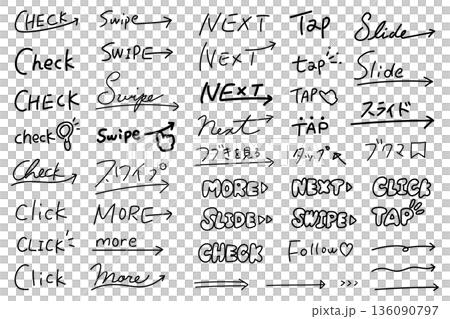 CHECK
Check
CHECK
check
Check
Click
CLICK
Click
Swipe
SWIPE
Swipe
Swipe
スワイプ
MORE
more
More
NEXT
NEXT
NEXT
Next
つづきを見る
MORE
SLIDE
CHECK
Tap
tap
TAP
TAP
タップ
NEXT
SWIPE
Follow
Slide
Slide
スライド
ブクマ
CLICK
TAP
136090797